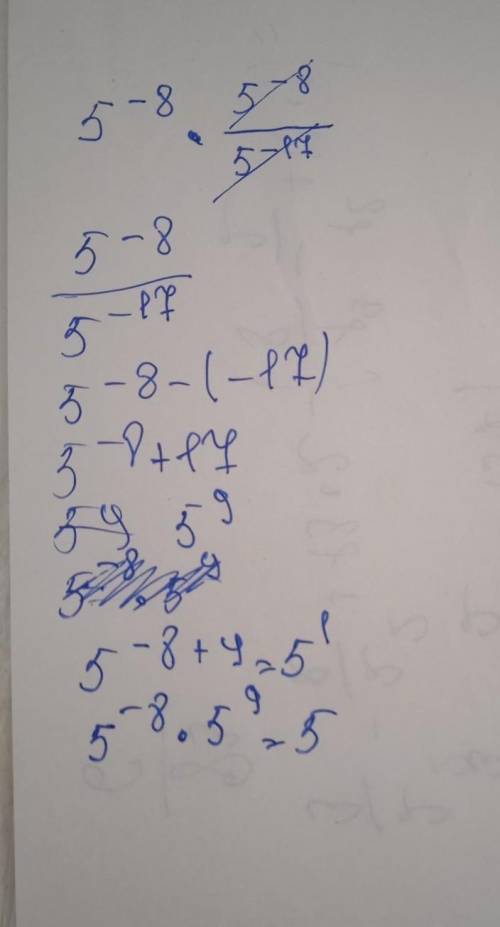 5^-8 · 5^-8 / 5^-17
5^-8 / 5^-17
5^-8-(-17)
5^-8+17
5^9 5^9
5^-8+9=5^1
5^-8 · 5^9=5